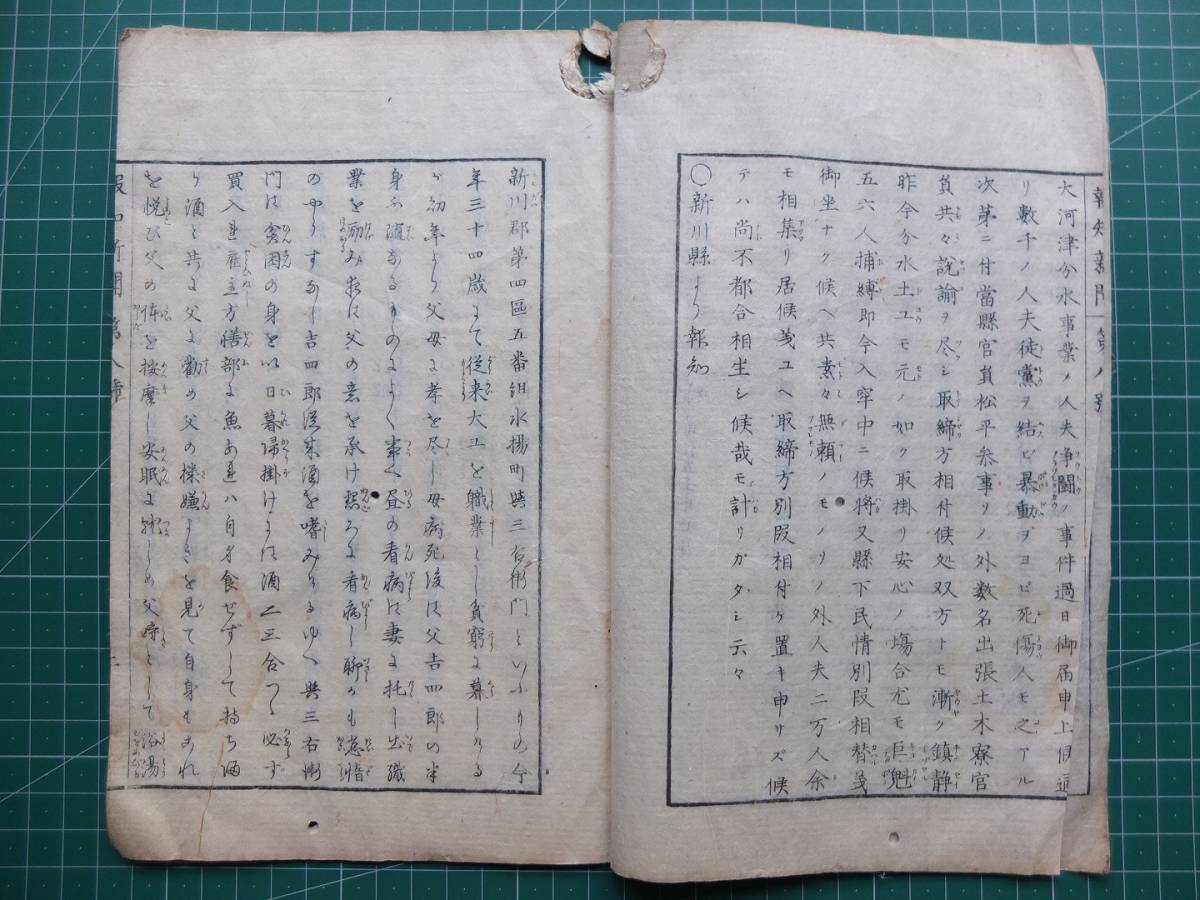 報知新聞 第八號
大河津分水事業ノ人夫浄闘ノ事件過日御届申上候通
リ數千ノ人夫徒黨ヲ結ビ暴動ヲヨビ死傷人モ之アル
次第ニ付當縣官員松平参事リノ外数名出張土木寮官
員共々説諭ヲ尽シ取締方相付候処双方トモ漸ク鎮静
昨今分水土ユモ元ノ如ク取掛リ安心ノ場合尤モ巨魁
五六人捕縛即今入窂中ニ候将又縣下民情別段相替義
御坐ナク候ヘ共素々無頼ノモノリノ外人夫二万人余
モ相集リ居候義ユヘ取締方別段相付ケ置キ申サズ候
テハ尚不都合相生シ候哉モ計リガタシ云々
〇新川縣より報知
新川郡第四區五番組水揚町與三右衛門といふもの今
年三十四歳にて従来大工を職業とし貧窮に暮しける
が幼年より父母に孝を尽し母病死後は父吉四郎の半
身不随なるものによく事へ昼の看病は妻に托し出職
業を励み夜は父の意を承け懇ろに看病し聊かも怠惰
のやうすなし吉四郎従来酒を嗜みけるゆへ與三右衛
門は貧困の身を以日暮帰掛けには酒二三合つゝ必ず
買入れ雇主方膳部に魚あれハ自身食せずして持ち酒
と共に父に勸め父の機嫌よきを見て自身もこれ
を悦び父の体を按摩し安眠に就しめ父時として浴湯
報知新聞 第八号